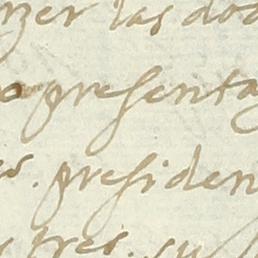 nzer las doc
presenta
es. presiden
tres. su